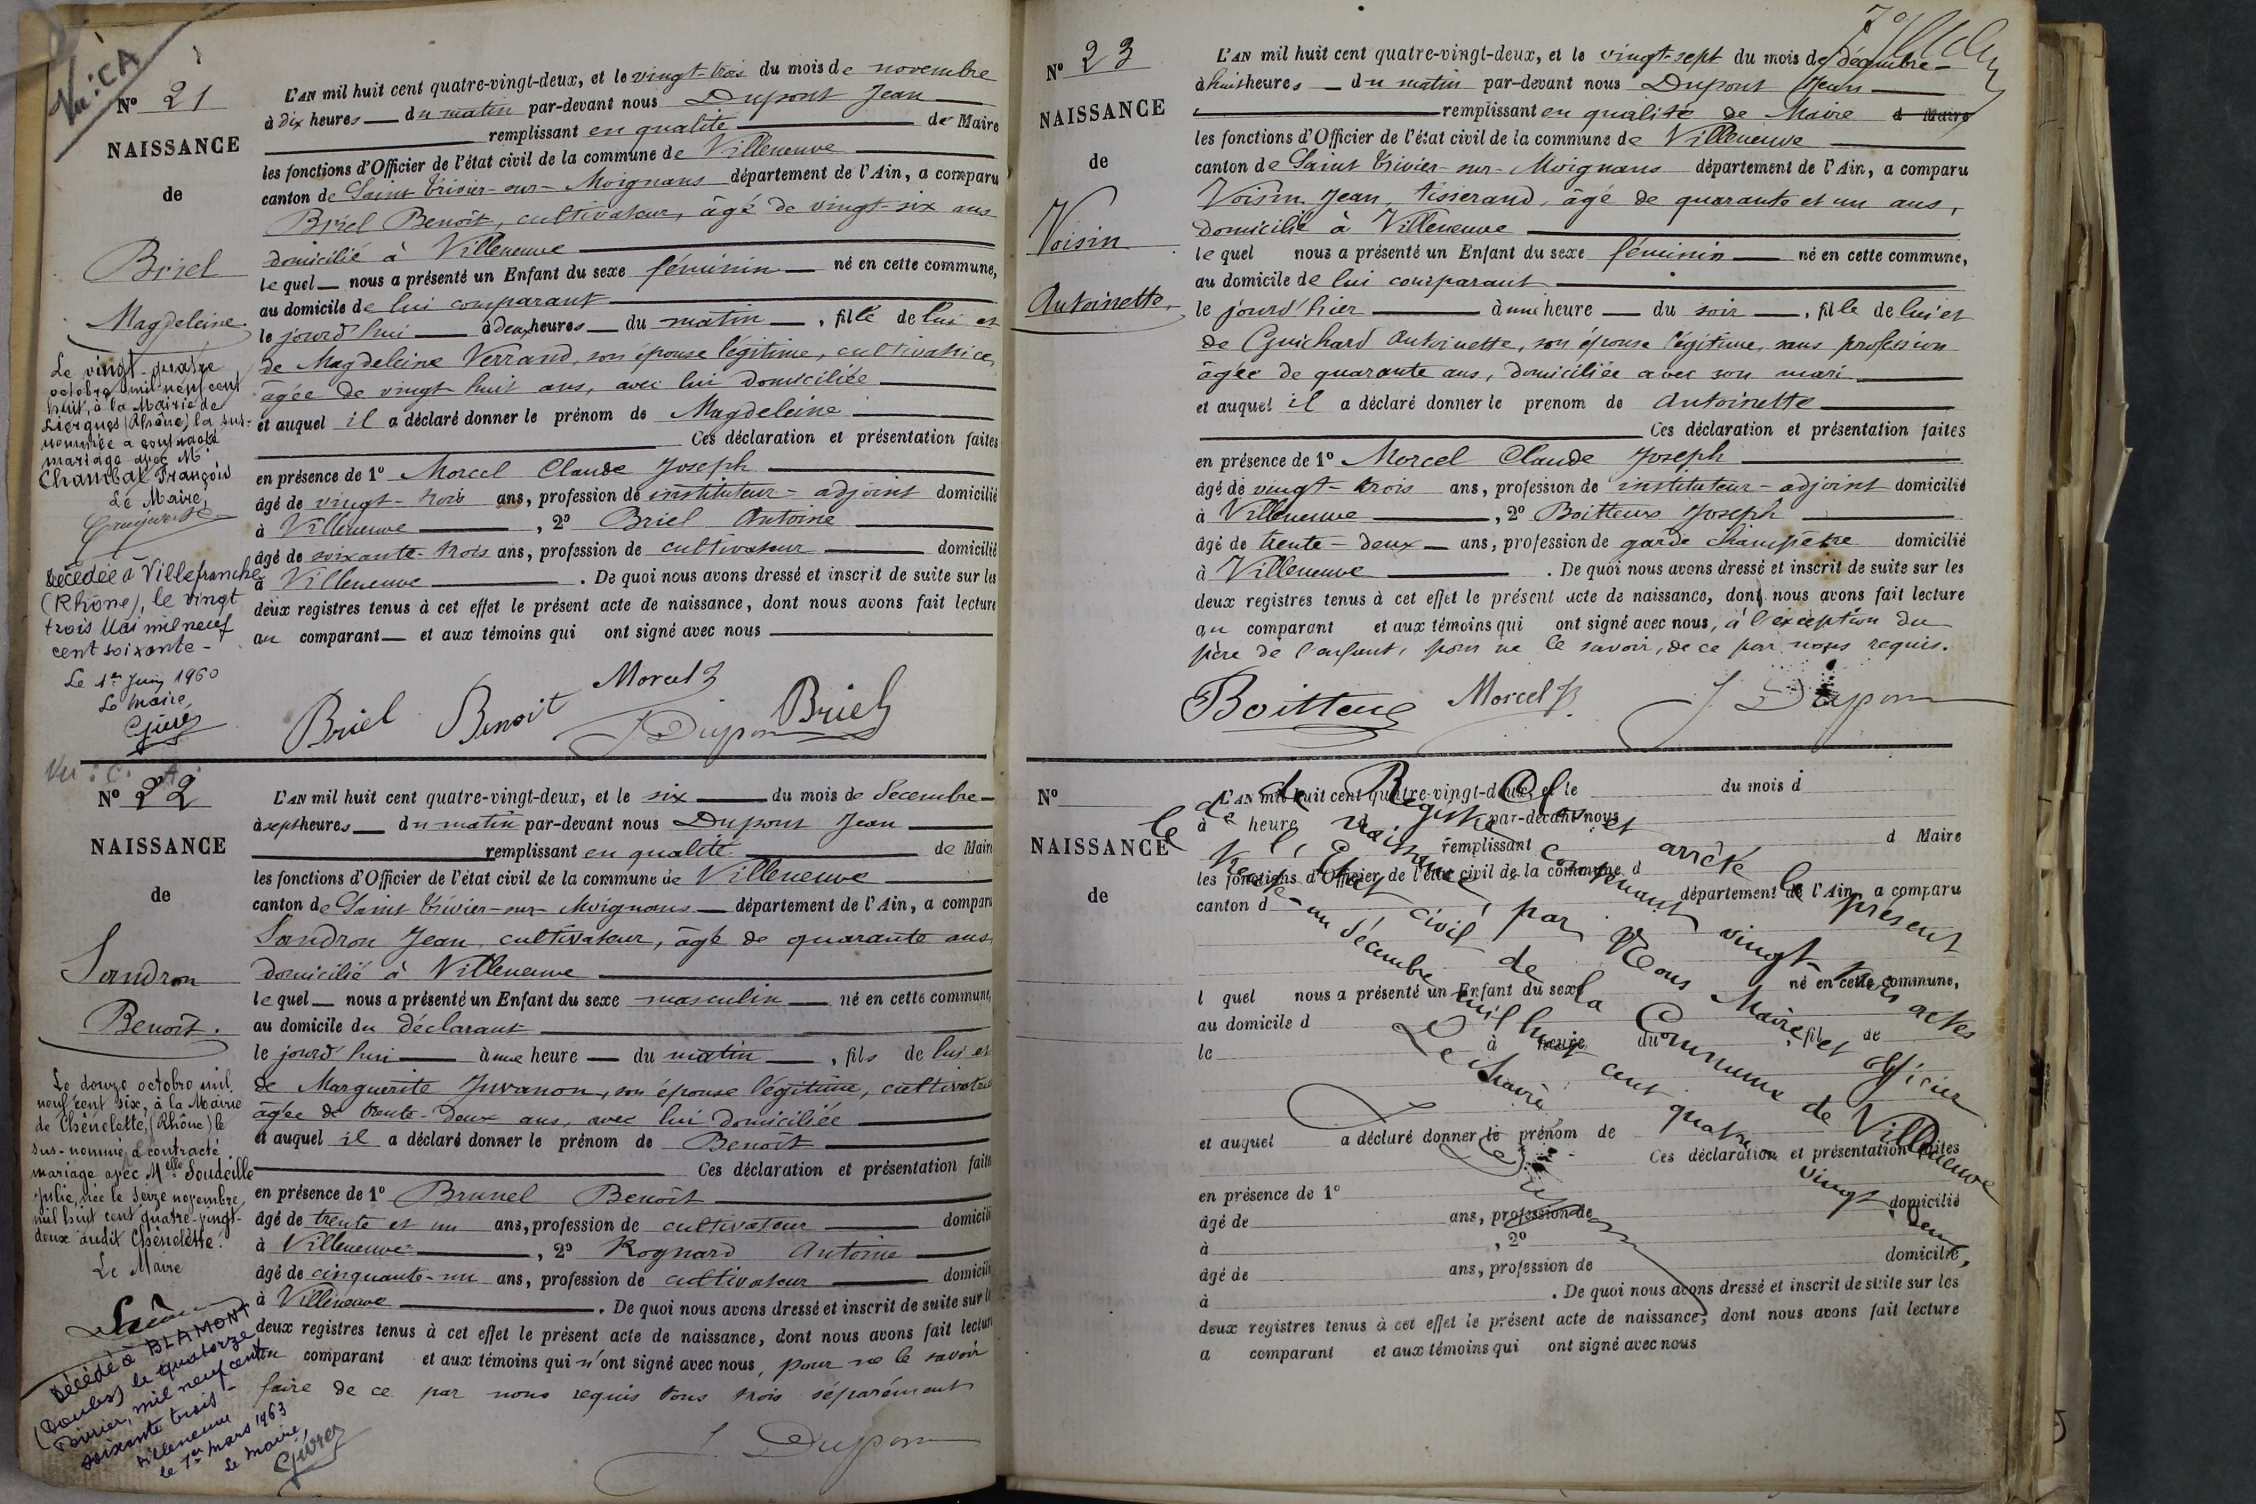 Vu : CA
N° 21
NAISSANCE
de
Briel
Magdeleine
Le vingt-quatre
octobre mil neuf cent
huit, à la Mairie de
Liergues (Rhône) la sus-
nommée a contracté
mariage avec Mr
Chambat François
Le Maire,
Décédée à Villefranche
(Rhône), le vingt
trois Mai mil neuf
cent soixante -
Le 1er Juin 1960
Le Maire,
L'AN mil huit cent quatre-vingt-deux, et le vingt-trois du mois de novembre
à dix heures du matin par-devant nous Dupont Jean
remplissant en qualité de Maire
les fonctions d'Officier de l'état civil de la commune de Villeneuve
canton de Saint Trivier-sur-Moignans département de l'Ain, a comparu
Briel Benoît, cultivateur, âgé de vingt-six ans
domicilié à Villeneuve
le quel nous a présenté un Enfant du sexe féminin né en cette commune,
au domicile de lui comparant
le jourd'hui à deux heures du matin, fille de lui et
de Magdeleine Verrand, son épouse légitime, cultivatrice,
âgée de vingt huit ans, avec lui domiciliée
et auquel il a déclaré donner le prénom de Magdeleine
Ces déclaration et présentation faites
en présence de 1° Morcel Claude Joseph
âgé de vingt-trois ans, profession de instituteur-adjoint domicilié
à Villeneuve, 2° Briel Antoine
âgé de soixante-trois ans, profession de cultivateur domicilié
à Villeneuve. De quoi nous avons dressé et inscrit de suite sur les
deux registres tenus à cet effet le présent acte de naissance, dont nous avons fait lecture
au comparant et aux témoins qui ont signé avec nous
Morcel J
Briel Benoit J Dupont Briel
Vu : C. A.
N° 22
NAISSANCE
de
Sandron
Benoît.
Le douze octobre mil
neuf cent six, à la Mairie
de Chénelette, (Rhône) le
sus-nommé a contracté
mariage avec Melle Soudeille
Julie, née le seize novembre
mil huit cent quatre-vingt-
deux audit Chénelette.
Le Maire
Décédé à BLAMONT
(Doubs) le quatorze
Février, mil neuf cent
soixante trois -
Villeneuve
le 1er mars 1963
Le Maire,
L'AN mil huit cent quatre-vingt-deux, et le six du mois de décembre
à sept heures du matin par-devant nous Dupont Jean
remplissant en qualité de Maire
les fonctions d'Officier de l'état civil de la commune de Villeneuve
canton de Saint Trivier-sur-Moignans département de l'Ain, a comparu
Sandron Jean, cultivateur, âgé de quarante ans
domicilié à Villeneuve
le quel nous a présenté un Enfant du sexe masculin né en cette commune,
au domicile du déclarant
le jourd'hui à une heure du matin, fils de lui et
de Marguerite Juvanon, son épouse légitime, cultivatrice
âgée de trente-deux ans, avec lui domiciliée
et auquel il a déclaré donner le prénom de Benoît
Ces déclaration et présentation faites
en présence de 1° Brunel Benoît
âgé de trente et un ans, profession de cultivateur domicilié
à Villeneuve, 2° Rognard Antoine
âgé de cinquante-un ans, profession de cultivateur domicilié
à Villeneuve. De quoi nous avons dressé et inscrit de suite sur les
deux registres tenus à cet effet le présent acte de naissance, dont nous avons fait lecture
au comparant et aux témoins qui n'ont signé avec nous, pour ne le savoir
faire de ce par nous requis tous trois séparément
J Dupont
N° 23
NAISSANCE
de
Voisin
Antoinette
L'AN mil huit cent quatre-vingt-deux, et le vingt-sept du mois de décembre
à huit heures du matin par-devant nous Dupont Jean
remplissant en qualité de Maire d Maire
les fonctions d'Officier de l'état civil de la commune de Villeneuve
canton de Saint Trivier-sur-Moignans département de l'Ain, a comparu
Voisin Jean, tisserand, âgé de quarante et un ans,
domicilié à Villeneuve
le quel nous a présenté un Enfant du sexe féminin né en cette commune,
au domicile de lui comparant
le jourd'hier à une heure du soir, fille de lui et
de Guichard Antoinette, son épouse légitime, sans profession
âgée de quarante ans, domiciliée avec son mari
et auquel il a déclaré donner le prenom de Antoinette
Ces déclaration et présentation faites
en présence de 1° Morcel Claude Joseph
âgé de vingt-trois ans, profession de instituteur-adjoint domicilié
à Villeneuve, 2° Boitteux Joseph
âgé de trente-deux ans, profession de garde champêtre domicilié
à Villeneuve. De quoi nous avons dressé et inscrit de suite sur les
deux registres tenus à cet effet le présent acte de naissance, dont nous avons fait lecture
au comparant et aux témoins qui ont signé avec nous, à l'exception du
père de l'enfant, pour ne le savoir, de ce par nous requis.
Boitteux Morcel J. J Dupont
N°
NAISSANCE
de
L'AN mil huit cent quatre-vingt-deux, et le du mois d
à heure d par-devant nous
remplissant d Maire
les fonctions d'Officier de l'état civil de la commune d
canton d département de l'Ain, a comparu
l quel nous a présenté un Enfant du sexe né en cette commune,
au domicile d
le à heure du , fil de
et auquel a déclaré donner le prénom de
Ces déclaration et présentation faites
en présence de 1°
âgé de ans, profession de domicilié
à , 2°
âgé de ans, profession de domicilié
à . De quoi nous avons dressé et inscrit de suite sur les
deux registres tenus à cet effet le présent acte de naissance, dont nous avons fait lecture
a comparant et aux témoins qui ont signé avec nous
Clos et arrêté le présent
Registre contenant vingt-trois actes
de naissance, par Nous Maire et officier
de l'Etat civil de la Commune de Villeneuve
le trente-un décembre mil huit cent quatre vingt deux,
Le Maire
J Dupont